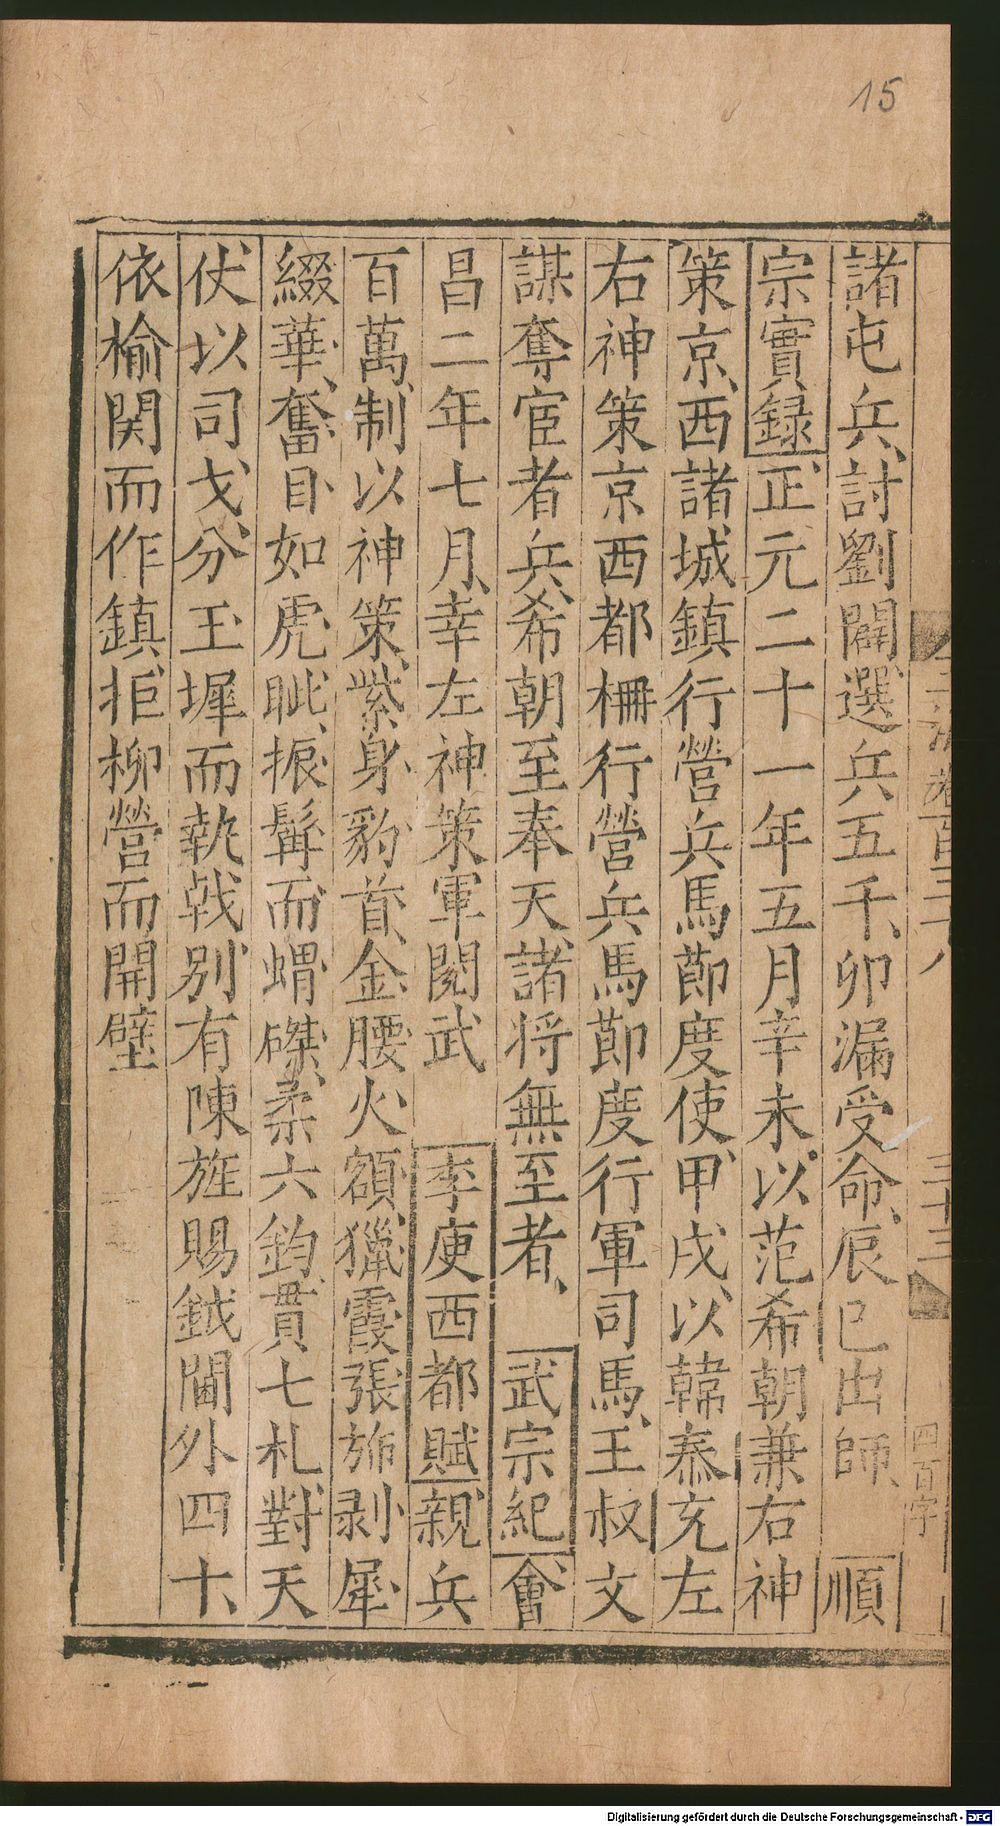 15
諸屯兵討劉闢選兵五千卯漏受命辰巳出師順
宗實録正元二十一年五月辛未以范希朝兼右神
策京西諸城鎮行營兵馬節度使甲戌以韓泰充左
右神策京西都柵行營兵馬節度行軍司馬王叔文
謀奪宦者兵希朝至奉天諸将無至者武宗紀會
昌二年七月幸左神策軍閱武 李庾西都賦親兵
百萬制以神策紫身豹首金腰火額獵霞張斾剥犀
綴華奮目如虎眦振髯而蝟磔柔六鈞貫七札對天
仗以司戈分玉墀而執戟别有陳旌賜鉞閫外四十
依榆関而作鎮拒柳營而開壁
百三十八
三十三
四百字
Digitalisierung gefördert durch die Deutsche Forschungsgemeinschaft - DFG